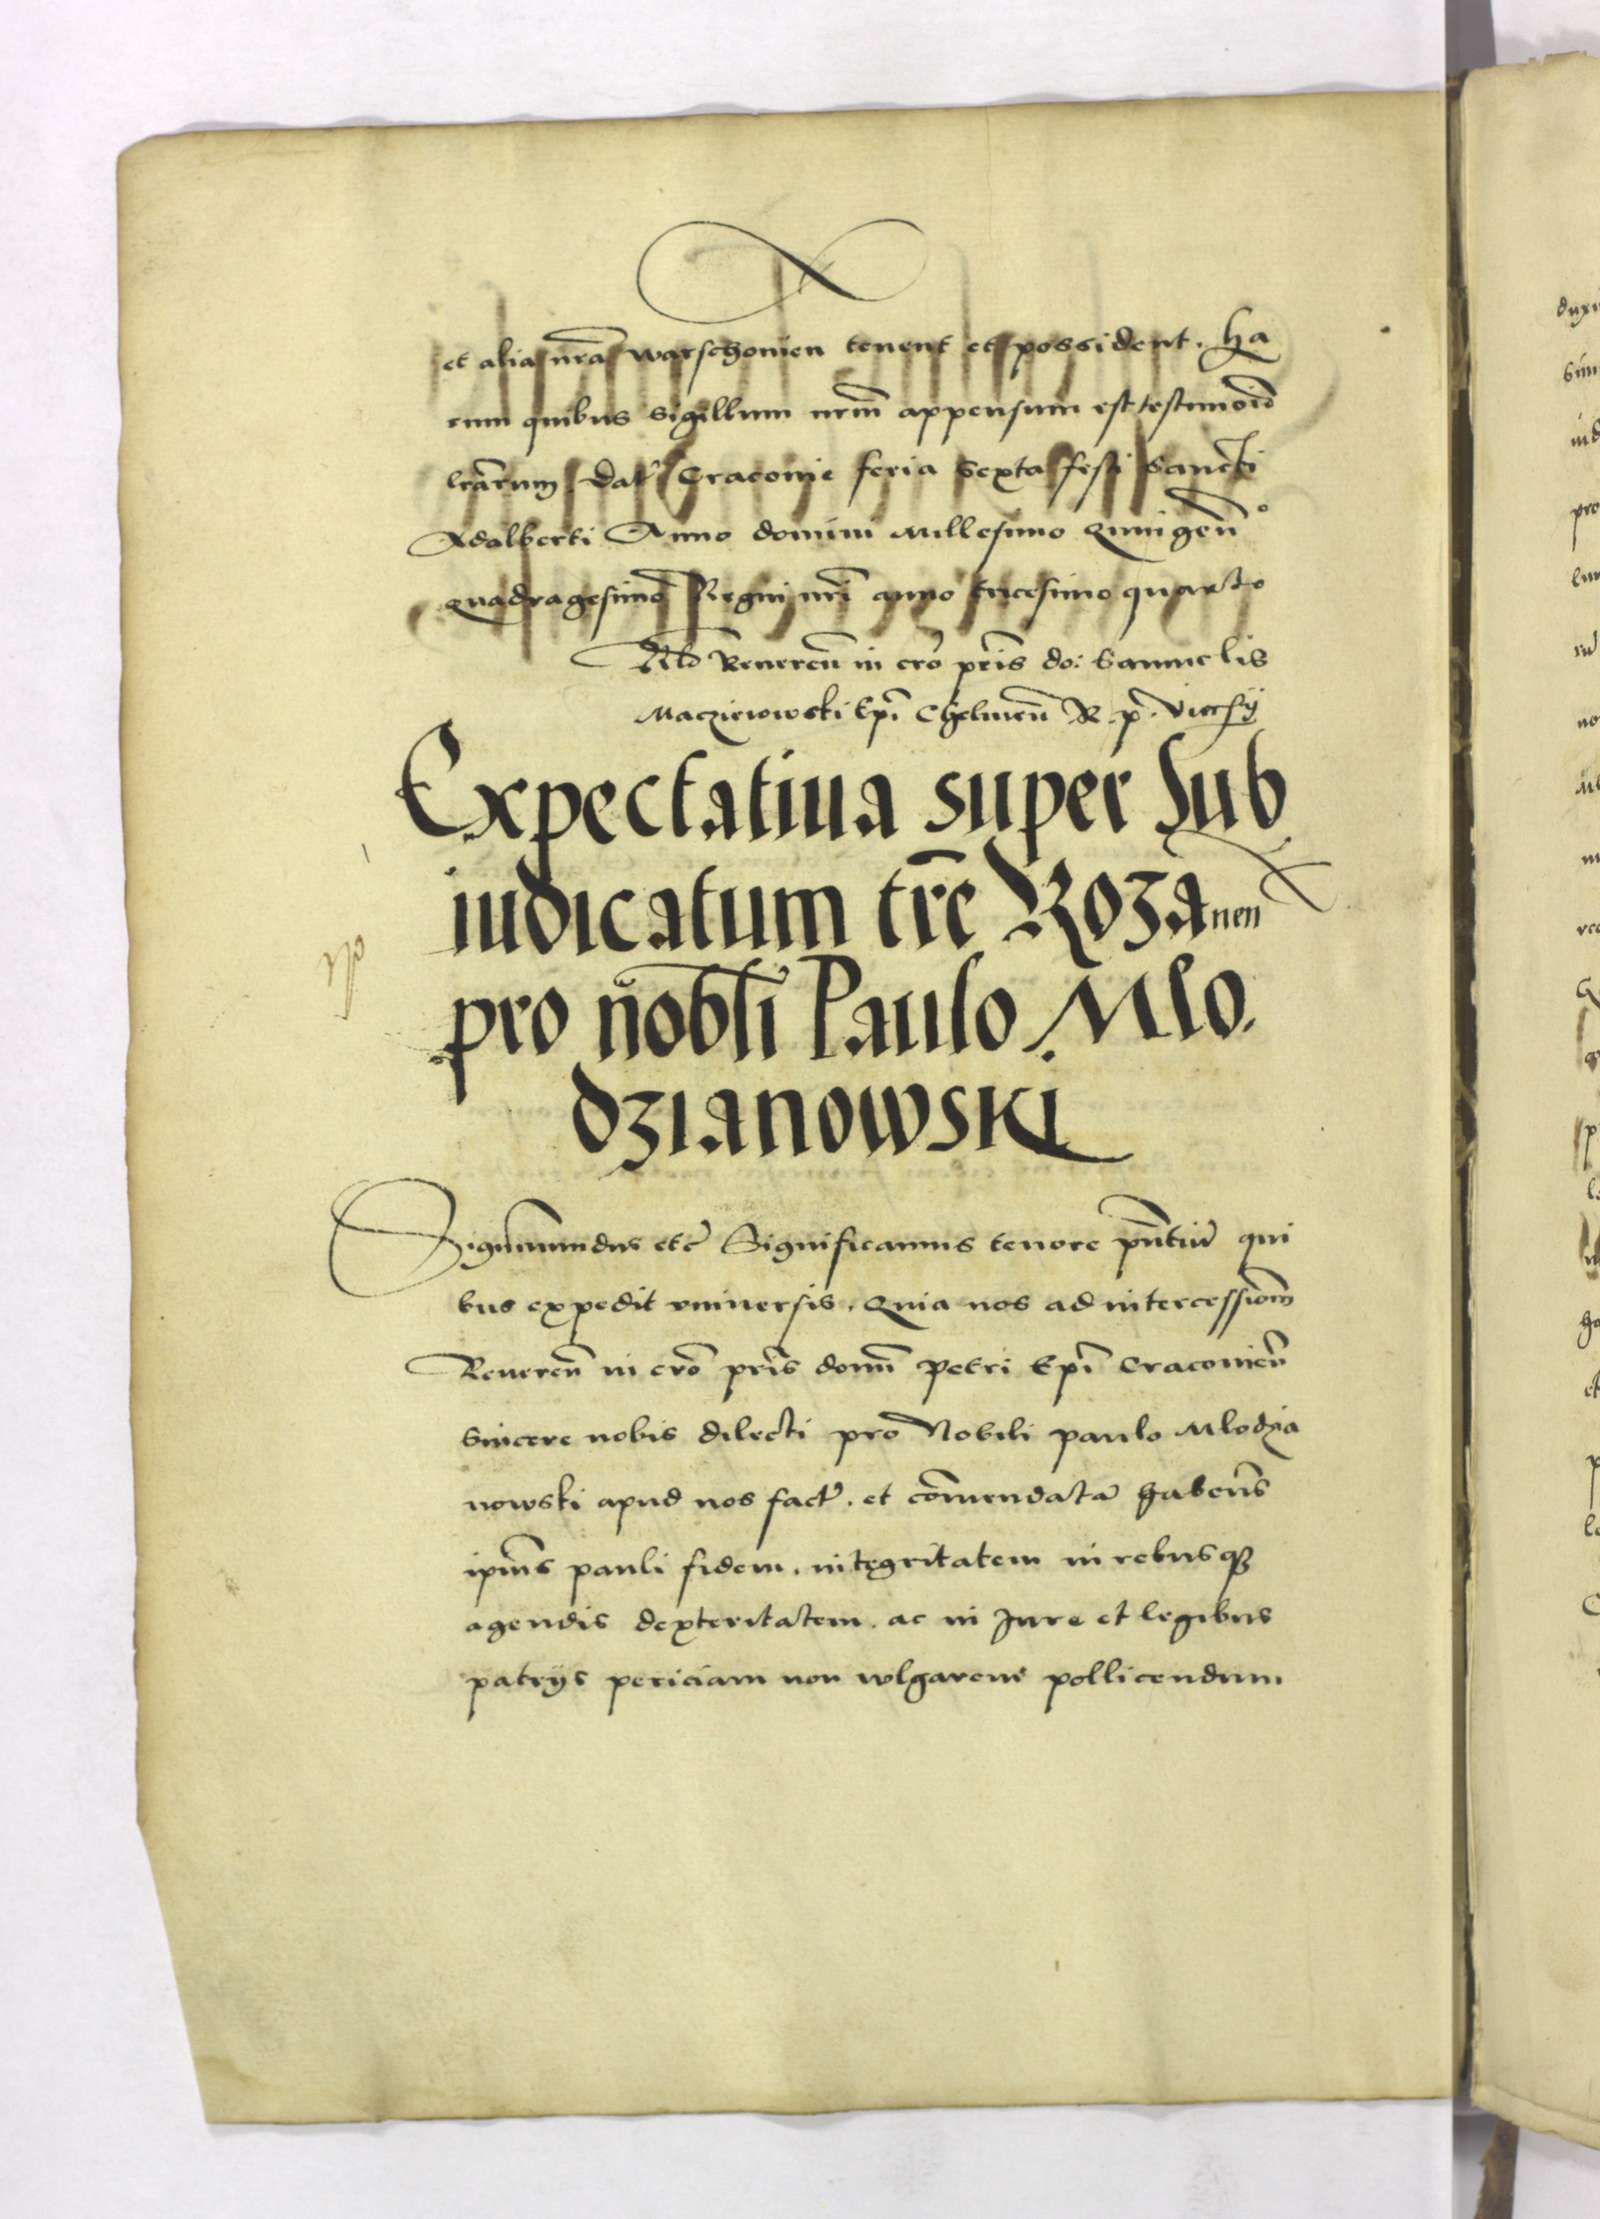 et alia nr̄a warschouien tenent et possident. Ha
rum quibus sigillum nrm̄ appensum est testimoīo
lrārum dat' Cracouie feria sexta festi Sancti
Adalberti Anno domini Millesimo Quingen̄º
quadragesimo Regni nrī anno tricesimo quarto
Rlō Reueren̄ in crō prīs do: Samuelis
Macziewowski Epī Chelmen̄ R. p. Vicesij
Expectatiua super sub
iudicatum trē Rozanen
pro nobli Paulo Mlo
dzianowski
Sigismundus etc̄ Significamus tenore pn̄tiū qui
bus expedit vniuersis. Quia nos ad intercessionm̄
Reueren̄ in crō prīs domī Petri Epī Cracouien̄
sincere nobis dilecti pro Nobili paulo Mlodzia
nowski apud nos fact'. et com̄endatā habent̄s
ipīus pauli fidem. integritatem in rebusqȝ
agendis dexteritatem. ac in Jure et legibus
patrijs periciam non wlgarem pollicendum